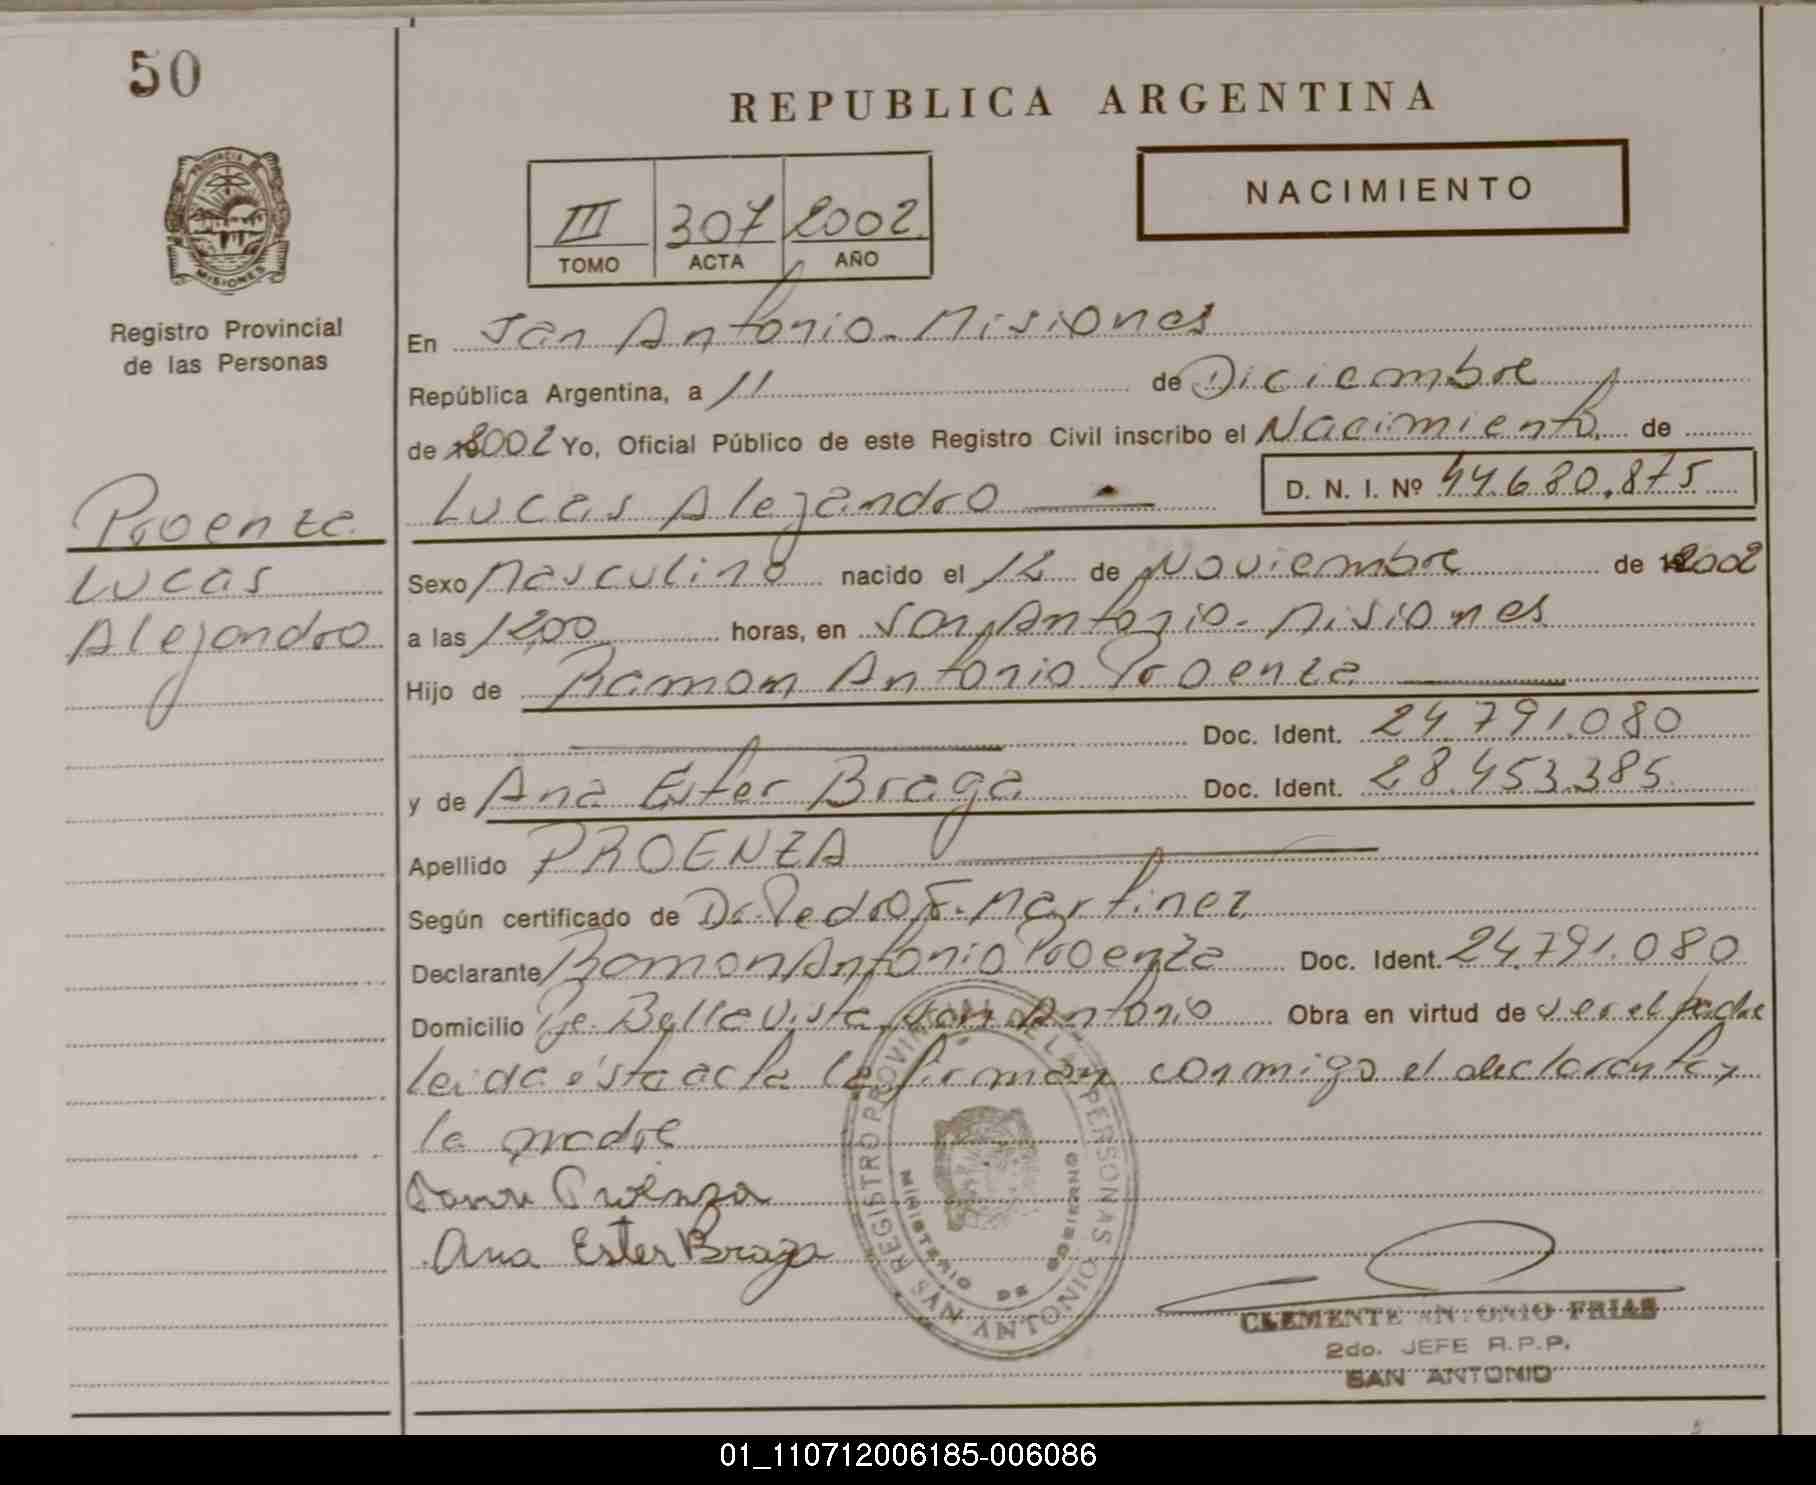 50
REPUBLICA ARGENTINA
NACIMIENTO
III 307 2002
TOMO ACTA AÑO
PROVINCIA DE MISIONES
Registro Provincial
de las Personas
En San Antonio - Misiones
República Argentina, a 11 de Diciembre
de 2002 Yo, Oficial Público de este Registro Civil inscribo el Nacimiento de
Lucas Alejandro D. N. I. Nº 44.680.875
Proenza
Lucas
Alejandro
Sexo Masculino nacido el 12 de Noviembre de 2002
a las 12,00 horas, en San Antonio - Misiones
Hijo de Ramon Antonio Proenza
Doc. Ident. 24.791.080
y de Ana Ester Braga Doc. Ident. 28.453.385
Apellido PROENZA
Según certificado de Dr. Pedro F. Martinez
Declarante Ramon Antonio Proenza Doc. Ident. 24.791.080
Domicilio Pje. Bella Vista, San Antonio Obra en virtud de ser el padre
leida ésta acta la firman conmigo el declarante y
la madre
Proenza
Ana Ester Braga
REGISTRO PROVINCIAL DE LAS PERSONAS
MINISTERIO DE GOBIERNO
SAN ANTONIO
CLEMENTE ANTONIO FRIAS
2do. JEFE R.P.P.
SAN ANTONIO
01_110712006185-006086